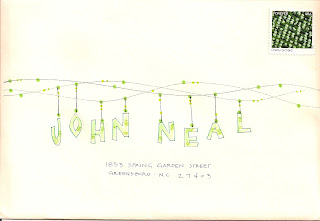 JOHN NEAL
1833 SPRING GARDEN STREET
GREENSBORO NC 27403